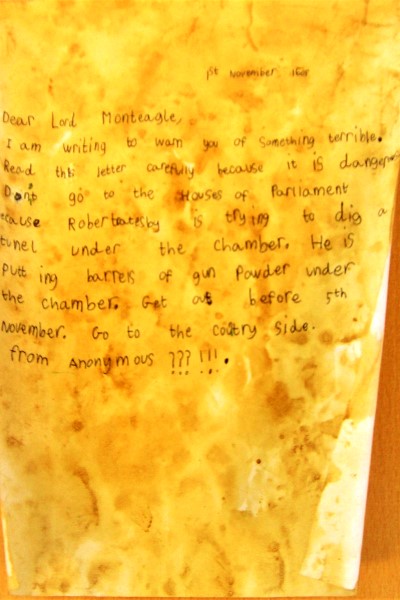 1st November 1605
Dear Lord Monteagle,
I am writing to warn you of something terrible.
Read this letter carefully because it is dangerous
Dont go to the Houses of Parliament
ecause Robertcatesby is trying to dig a
tunel under the chamber. He is
putt ing barrels of gun powder under
the chamber. Get out before 5th
November. Go to the coutry side.
from Anonymous ??? !!!.